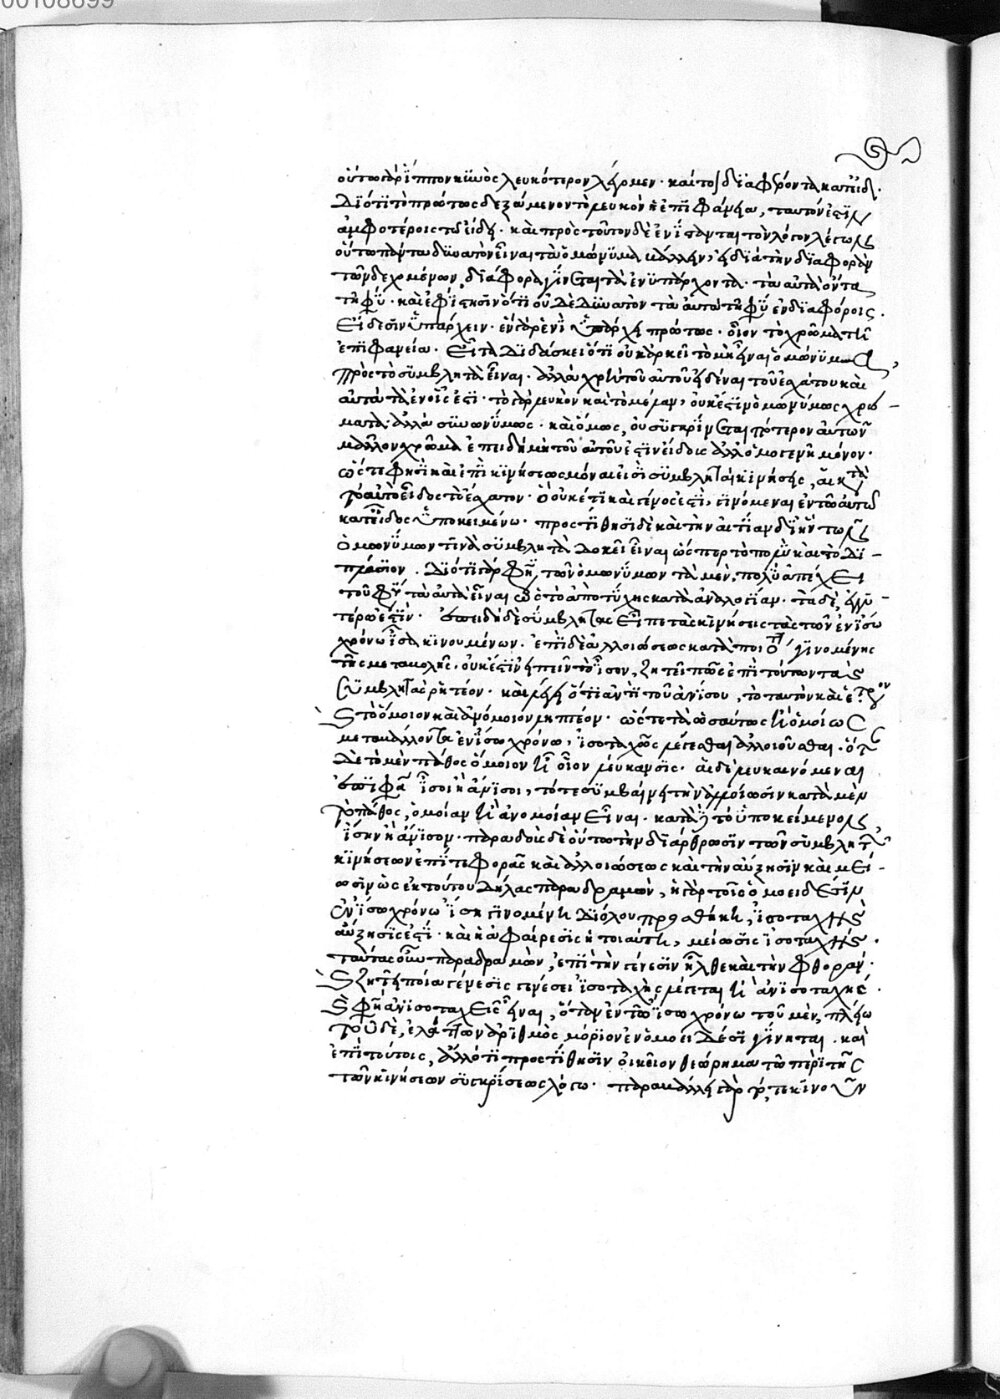 00108699
οὕτω γὰρ ἵππον κυνὸς λευκότερον λέγομεν · καίτοι διαφέροντα κατ' εἶδος ·
διότι τὸ πρώτως δεξάμενον τὸ λευκὸν ἡ ἐπιφάνεια, ταυτόν ἐστιν
ἀμφοτέροις τῷ εἴδει · καὶ πρὸς τοῦτον δὲ ἐνίσταται τὸν λόγον λέγων
οὕτω πάντα δυνατὸν εἶναι τὰ ὁμώνυμα μᾶλλον, εἰ διὰ τὴν διαφορὰν
τῶν δεχομένων, διάφορα γίνεται τὰ ἐνυπάρχοντα · τὰ αὐτὰ ὄντα
τῇ φύσει · καὶ ἐφίστησιν ὅτι οὐδὲ δυνατὸν τὰ αὐτὰ τῇ φύσει ἐν διαφόροις
εἴδεσιν ὑπάρχειν · ἓν γὰρ ἑνὶ ὑπάρχει πρώτως · οἷον τὸ χρῶμα τῇ
ἐπιφανείᾳ · εἶτα διδάσκει ὅτι οὐκ ἀρκεῖ τὸ μὴ εἶναι ὁμώνυμα,
πρὸς τὸ σύμβλητα εἶναι · ἀλλὰ χρὴ τοῦ αὐτοῦ εἴδους εἶναι τοῦ ἐσχάτου καὶ
αὐτὰ τὰ ἐν οἷς ἐστι · τὸ γὰρ λευκὸν καὶ τὸ μέλαν, οὐκ ἔστιν ὁμωνύμως χρώ-
ματα · ἀλλὰ συνωνύμως · καὶ ὅμως, οὐ συγκρίνεται πότερον αὐτῶν
μᾶλλον χρῶμα ἐπειδὴ μὴ τοῦ αὐτοῦ ἐστιν εἴδους ἀλλ' ὁμογενῆ μόνον ·
ὥστε φησὶ καὶ ἐπὶ κινήσεως μόναι εἰσὶ συμβληταὶ αἱ κινήσεις, αἱ κατὰ
τὸ αὐτὸ εἶδος τὸ ἔσχατον · ὃ οὐκέτι καὶ γένος ἐστι, γινόμεναι ἐν τῷ αὐτῷ
κατ' εἶδος ὑποκειμένῳ · προστίθησι δὲ καὶ τὴν αἰτίαν δι' ἣν τῶν
ὁμωνύμων τινὰ σύμβλητα δοκεῖ εἶναι ὥσπερ τὸ πολὺ καὶ τὸ δι-
πλάσιον · διότι γάρ φησι τῶν ὁμωνύμων τὰ μὲν, πολὺ ἀπέχει
τοῦ φύσει τὰ αὐτὰ εἶναι ὡς τὸ ἀπὸ τύχης κατὰ ἀναλογίαν · τὰ δὲ, ἐγγυ-
τέρω ἐστίν · ἐπειδὴ δὲ συμβλητὰς εἶπε τὰς κινήσεις τὰς τῶν ἐν ἴσῳ
χρόνῳ ἴσα κινουμένων · ἐπὶ δὲ ἀλλοιώσεως κατὰ ποιὸν γινομένης
τῆς μεταβολῆς · οὐκ ἔστιν εἰπεῖν τὸ ἴσον, ζητεῖ πῶς ἐπὶ τούτων τὰς
συμβλητὰς ῥητέον · καὶ λέγει ὅτι ἀντὶ τοῦ ἀνίσου, τὸ ταυτὸν καὶ ἕτερον
τὸ ὅμοιον καὶ ἀνόμοιον ληπτέον · ὥστε τὰ ὡσαύτως ἢ ὁμοίως
μεταβάλλοντα ἐν ἴσῳ χρόνῳ, ἰσοταχῶς λέγεσθαι ἀλλοιοῦσθαι · ὅταν
δὲ τὸ μὲν πάθος ὅμοιον ᾖ οἷον λεύκανσις · αἱ δὲ λευκαινόμεναι
ἐπιφάνειαι ἴσοι ἢ ἄνισοι, τότε συμβαίνει τὴν ἀλλοίωσιν κατὰ μὲν
τὸ πάθος, ὁμοίαν ἢ ἀνομοίαν εἶναι · κατὰ δὲ τὸ ὑποκείμενον
ἴσην ἢ ἄνισον · παραδοὺς δὲ οὕτω τὴν διάρθρωσιν τῶν συμβλητῶν
κινήσεων ἐπί τε φορᾶς καὶ ἀλλοιώσεως καὶ τὴν αὔξησιν καὶ μεί-
ωσιν ὡς ἐκ τούτου δήλας παραδραμὼν, ἡ γὰρ τοῖς ὁμοειδέσιν
ἐν ἴσῳ χρόνῳ ἴση γινομένη δι' ὅλου προσθήκη, ἰσοταχὴς
αὔξησίς ἐστι · καὶ ἡ ἀφαίρεσις ἡ τοιαύτη, μείωσις ἰσοταχής ·
ταύτας οὖν παραδραμὼν, ἐπὶ τὴν γένεσιν ἦλθε καὶ τὴν φθοράν ·
ζητεῖ ποία γένεσις γενέσει ἰσοταχὴς λέγεται ἢ ἀνισοταχής ·
φησὶν ἀνισοταχεῖς εἶναι, ὅταν ἐν τῷ ἴσῳ χρόνῳ τοῦ μὲν, πλείω
τοῦ δὲ, ἐλάττων ἀριθμὸς μορίων ἐν ὁμοειδέσι γίνηται · καὶ
ἐπὶ τούτοις, ἄλλό τι προστίθησιν οἰκεῖον θεώρημα τῷ περὶ τῆς
τῶν κινήσεων συγκρίσεως λόγῳ · παραβάλλει γὰρ τό τε κινοῦν